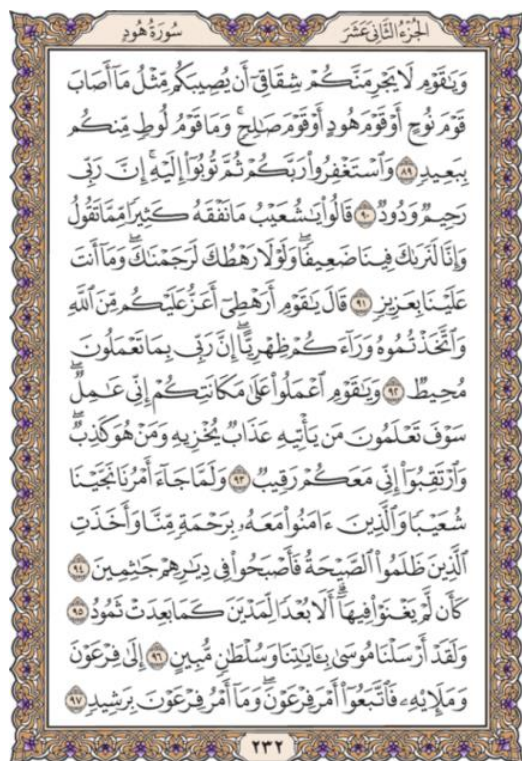 الجزء الثاني عشر
سورة هود
وَيَٰقَوْمِ لَا يَجْرِمَنَّكُمْ شِقَاقِيٓ أَن يُصِيبَكُم مِّثْلُ مَآ أَصَابَ
قَوْمَ نُوحٍ أَوْ قَوْمَ هُودٍ أَوْ قَوْمَ صَٰلِحٍۚ وَمَا قَوْمُ لُوطٍ مِّنكُم
بِبَعِيدٍ ٨٩ وَٱسْتَغْفِرُوا۟ رَبَّكُمْ ثُمَّ تُوبُوٓا۟ إِلَيْهِۚ إِنَّ رَبِّي
رَحِيمٌ وَدُودٌ ٩٠ قَالُوا۟ يَٰشُعَيْبُ مَا نَفْقَهُ كَثِيرًا مِّمَّا تَقُولُ
وَإِنَّا لَنَرَىٰكَ فِينَا ضَعِيفًاۖ وَلَوْلَا رَهْطُكَ لَرَجَمْنَٰكَۖ وَمَآ أَنتَ
عَلَيْنَا بِعَزِيزٍ ٩١ قَالَ يَٰقَوْمِ أَرَهْطِيٓ أَعَزُّ عَلَيْكُم مِّنَ ٱللَّهِ
وَٱتَّخَذْتُمُوهُ وَرَآءَكُمْ ظِهْرِيًّاۖ إِنَّ رَبِّي بِمَا تَعْمَلُونَ
مُحِيطٌ ٩٢ وَيَٰقَوْمِ ٱعْمَلُوا۟ عَلَىٰ مَكَانَتِكُمْ إِنِّي عَٰمِلٌۖ
سَوْفَ تَعْلَمُونَ مَن يَأْتِيهِ عَذَابٌ يُخْزِيهِ وَمَنْ هُوَ كَٰذِبٌۖ
وَٱرْتَقِبُوٓا۟ إِنِّي مَعَكُمْ رَقِيبٌ ٩٣ وَلَمَّا جَآءَ أَمْرُنَا نَجَّيْنَا
شُعَيْبًا وَٱلَّذِينَ ءَامَنُوا۟ مَعَهُۥ بِرَحْمَةٍ مِّنَّا وَأَخَذَتِ
ٱلَّذِينَ ظَلَمُوا۟ ٱلصَّيْحَةُ فَأَصْبَحُوا۟ فِي دِيَٰرِهِمْ جَٰثِمِينَ ٩٤
كَأَن لَّمْ يَغْنَوْا۟ فِيهَآۗ أَلَا بُعْدًا لِّمَدْيَنَ كَمَا بَعِدَتْ ثَمُودُ ٩٥
وَلَقَدْ أَرْسَلْنَا مُوسَىٰ بِـَٔايَٰتِنَا وَسُلْطَٰنٍ مُّبِينٍ ٩٦ إِلَىٰ فِرْعَوْنَ
وَمَلَإِي۟هِۦ فَٱتَّبَعُوٓا۟ أَمْرَ فِرْعَوْنَۖ وَمَآ أَمْرُ فِرْعَوْنَ بِرَشِيدٍ ٩٧
٢٣٢